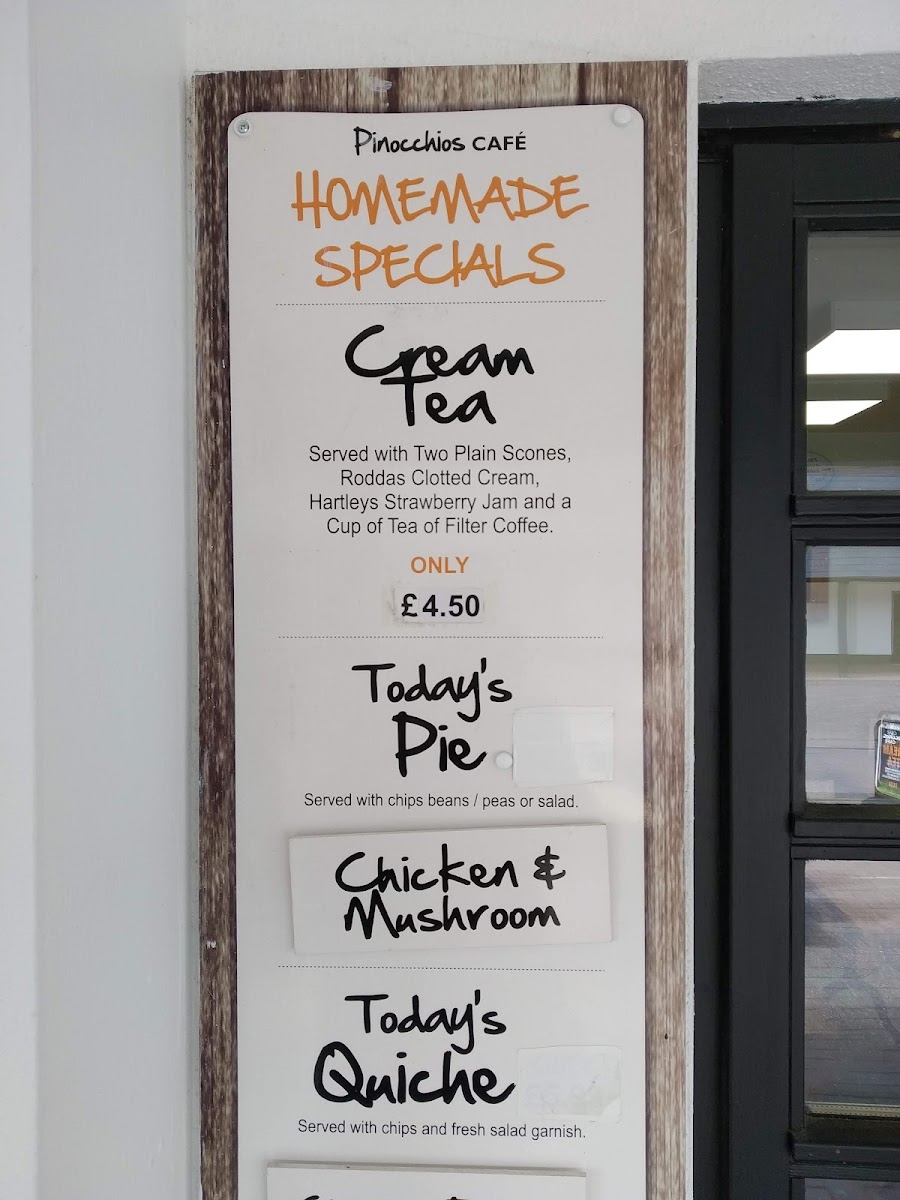 Pinocchios CAFÉ
HOMEMADE
SPECIALS
Cream
Tea
Served with Two Plain Scones,
Roddas Clotted Cream,
Hartleys Strawberry Jam and a
Cup of Tea of Filter Coffee.
ONLY
£4.50
Today's
Pie
Served with chips beans / peas or salad.
Chicken &
Mushroom
Today's
Quiche
Served with chips and fresh salad garnish.